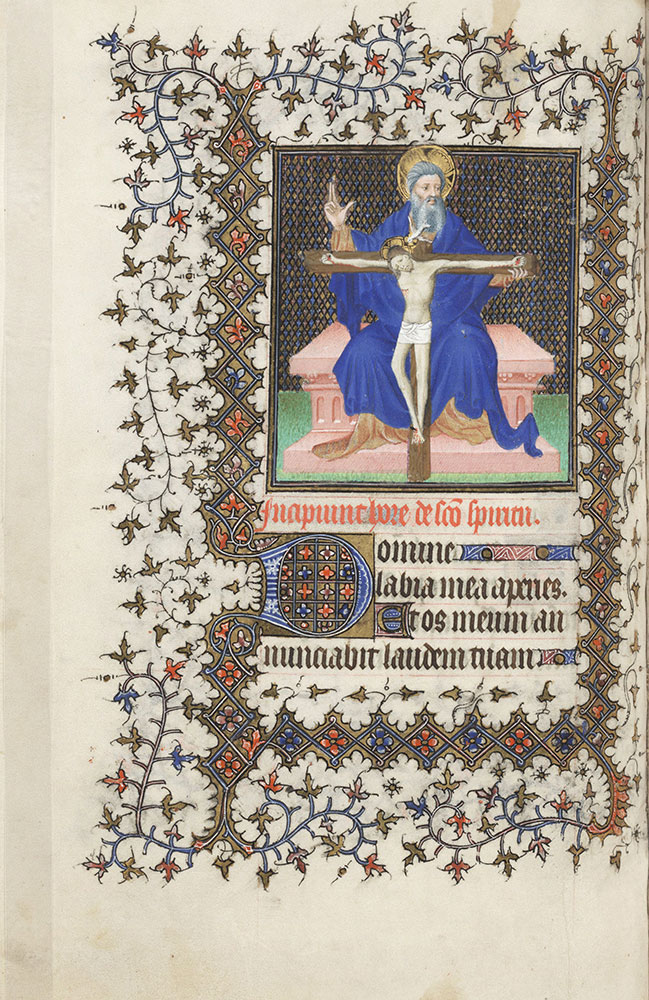 Incipiunt hore de sco spiritu.
Domine
labia mea aperies.
Et os meum an
nunciabit laudem tuam